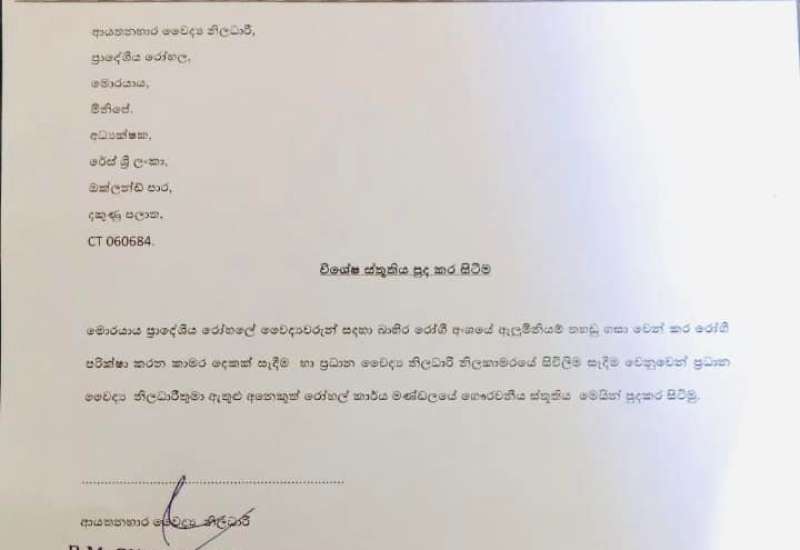 ආයතනභාර වෛද්‍ය නිලධාරී,
ප්‍රාදේශීය රෝහල,
මොරයාය,
මිනිපේ.
අධ්‍යක්ෂක,
රේස් ශ්‍රී ලංකා,
ඔක්ලන්ඩ් පාර,
දකුණු පලාත,
CT 060684.
විශේෂ ස්තූතිය පුද කර සිටීම
මොරයාය ප්‍රාදේශීය රෝහලේ වෛද්‍යවරුන් සඳහා බාහිර රෝගී අංශයේ ඇලුමිනියම් තහඩු ගසා වෙන් කර රෝගී
පරික්ෂා කරන කාමර දෙකක් සෑදීම හා ප්‍රධාන වෛද්‍ය නිලධාරී නිලකාමරයේ සිවිලිම සෑදීම වෙනුවෙන් ප්‍රධාන
වෛද්‍ය නිලධාරීතුමා ඇතුළු අනෙකුත් රෝහල් කාර්ය මණ්ඩලයේ ගෞරවනීය ස්තූතිය මෙයින් පුදකර සිටිමු.
ආයතනභාර වෛද්‍ය නිලධාරී